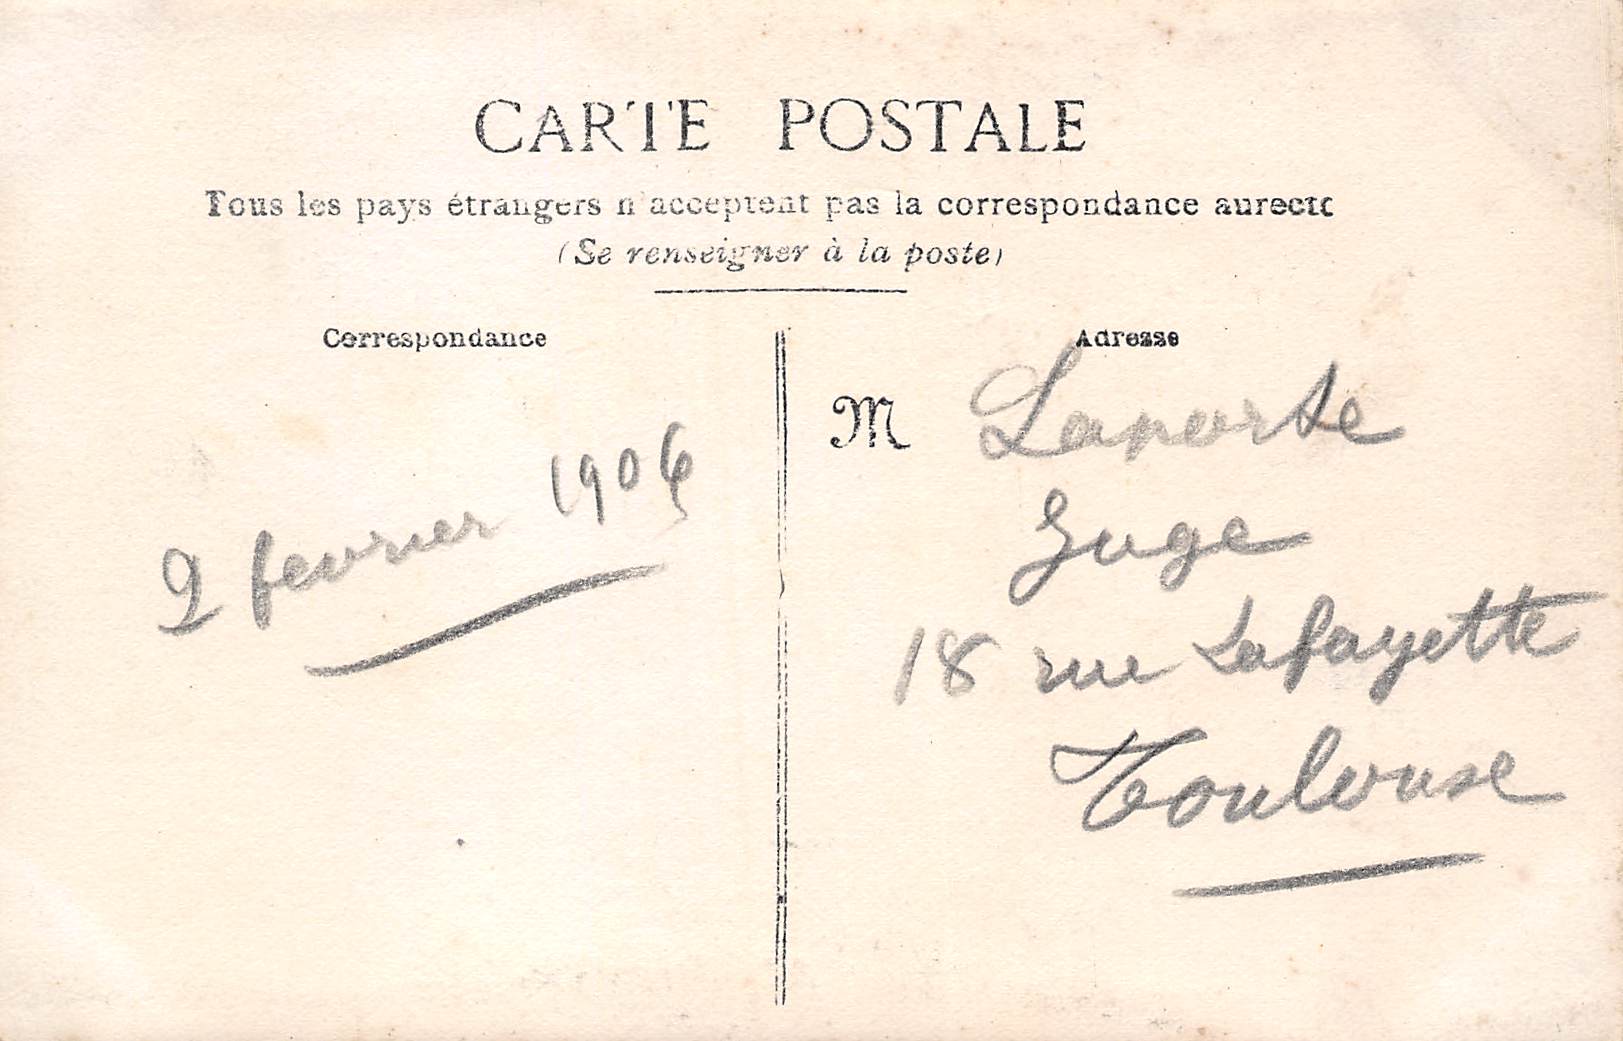 CARTE POSTALE
Tous les pays étrangers n'acceptent pas la correspondance au recto
(Se renseigner à la poste)
Correspondance
Adresse
2 fevrier 1906
M Laporte
Juge
18 rue Lafayette
Toulouse